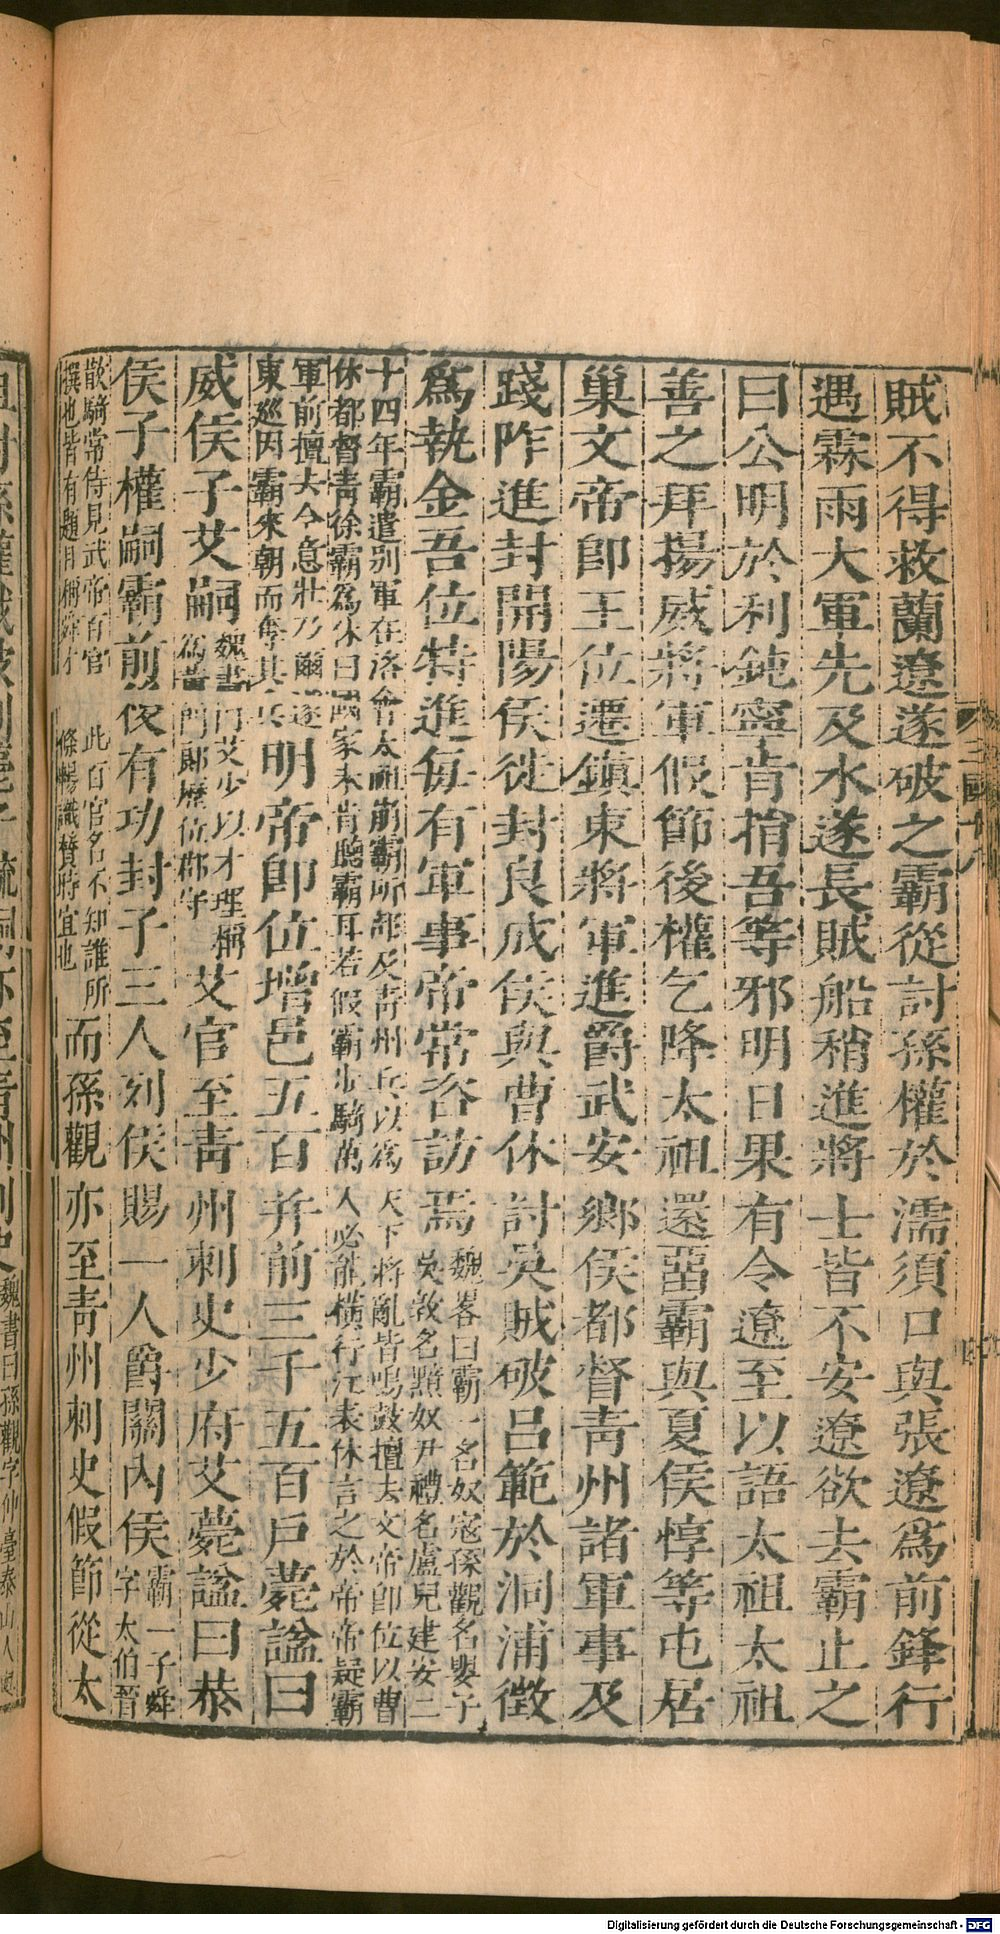 賊不得救蘭遼遂破之霸從討孫權於濡須口與張遼爲前鋒行
遇霖雨大軍先及水遂長賊船稍進將士皆不安遼欲去霸止之
曰公明於利鈍寧肯捐吾等邪明日果有令遼至以語太祖太祖
善之拜揚威將軍假節後權乞降太祖還留霸與夏侯惇等屯居
巢文帝卽王位遷鎭東將軍進爵武安鄉侯都督靑州諸軍事及
踐阼進封開陽侯徙封良成侯與曹休討吳賊破呂範於洞浦徵
爲執金吾位特進每有軍事帝常咨訪焉魏畧曰霸一名奴寇孫觀名嬰子
吳敦名黯奴尹禮名盧兒建安二
十四年霸遣别軍在洛會太祖崩霸所部及靑州兵以爲天下將亂皆鳴鼓擅去文帝卽位以曹
休都督靑徐霸爲休曰國家未肯聽霸耳若假霸步騎萬人必能橫行江表休言之於帝帝疑霸
軍前擅去今意壯乃爾遂
東巡因霸來朝而奪其兵
明帝卽位增邑五百幷前三千五百戶薨諡曰
威侯子艾嗣魏書曰艾少以才理稱
爲黃門郎歷位郡守
艾官至靑州刺史少府艾薨諡曰恭
侯子權嗣霸前後有功封子三人列侯賜一人爵關內侯霸一子舜
字太伯晉
散騎常侍見武帝百官
撰也皆有題目稱舜才
此百官名不知誰所
條暢識贊時宜也
而孫觀亦至靑州刺史假節從太
三國十八
魏書曰孫觀字仲臺泰山人
Digitalisierung gefördert durch die Deutsche Forschungsgemeinschaft - DFG